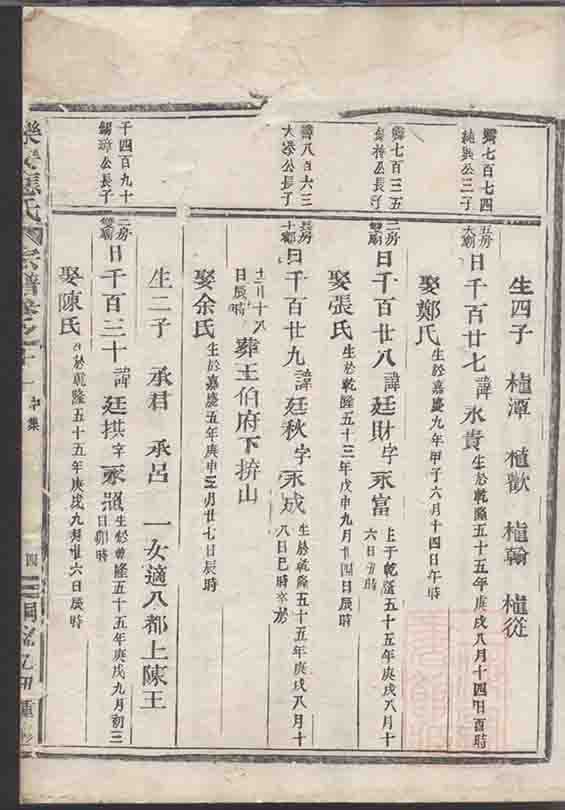 生四子 植潭 植歡 植翰 植從
純與公三子
五房
大廟
日千百廿七諱永貴
生於乾隆五十五年庚戌八月十四日酉時
娶鄭氏
生於嘉慶九年甲子六月十四日午時
二房
日千百廿八諱廷財字永富
生于乾隆五十五年庚戌八月十
六日丑時
娶張氏
生於乾隆五十三年戊申九月廿四日辰時
諱八百六三
公長子
日千百廿九諱廷秋字永成
生於乾隆五十五年庚戌八月十
八日巳時卒於
十二月十八
日辰時
葬王伯府下拚山
娶余氏
生於嘉慶五年庚申三月廿七日辰時
生二子 承君 承呂 一女適八都上陳王
千四百九十
公長子
二房
日千百三十諱廷拱字
生於乾隆五十五年庚戌九月初三
日卯時
娶陳氏
生於乾隆五十五年庚戌九月廿六日辰時
氏宗譜卷之十一
四